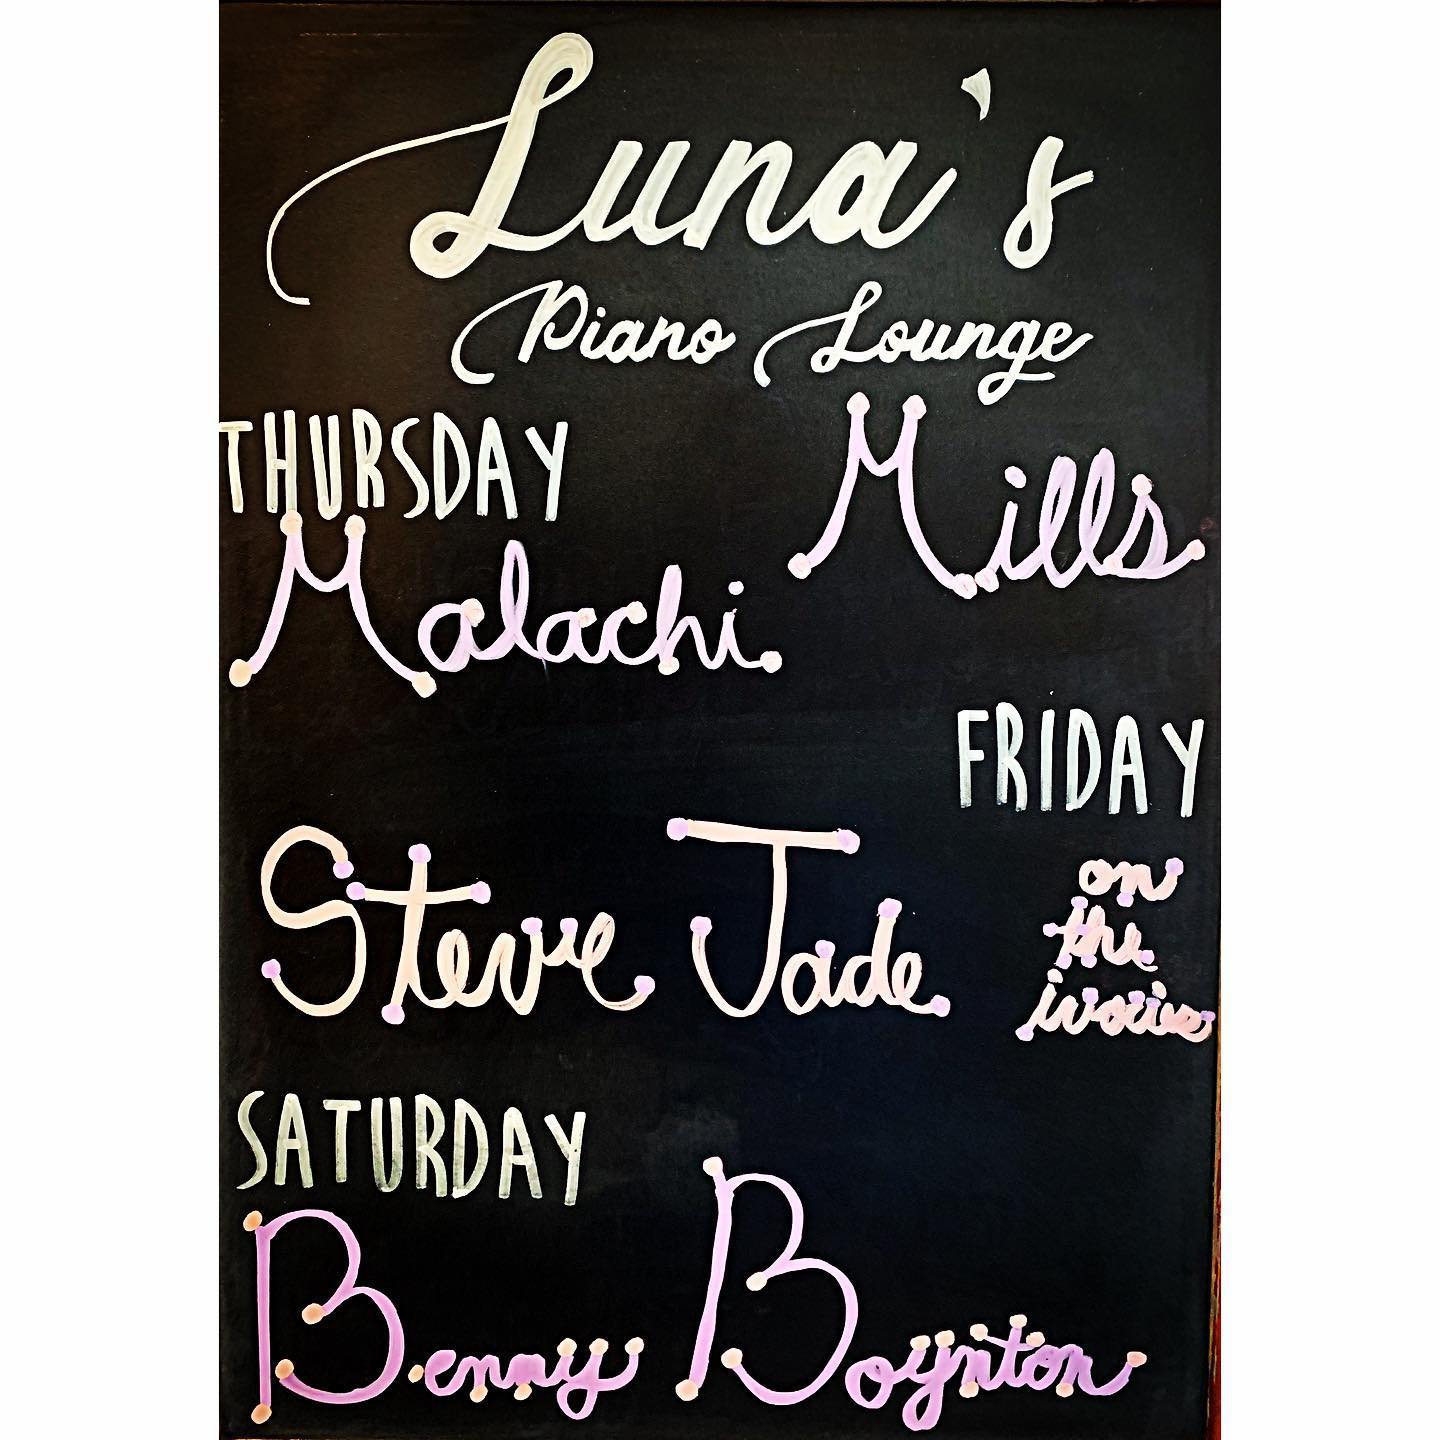 Luna's
Piano Lounge
THURSDAY
Malachi Mills
FRIDAY
Steve Jade
on
the
ivories
SATURDAY
Benny Boynton